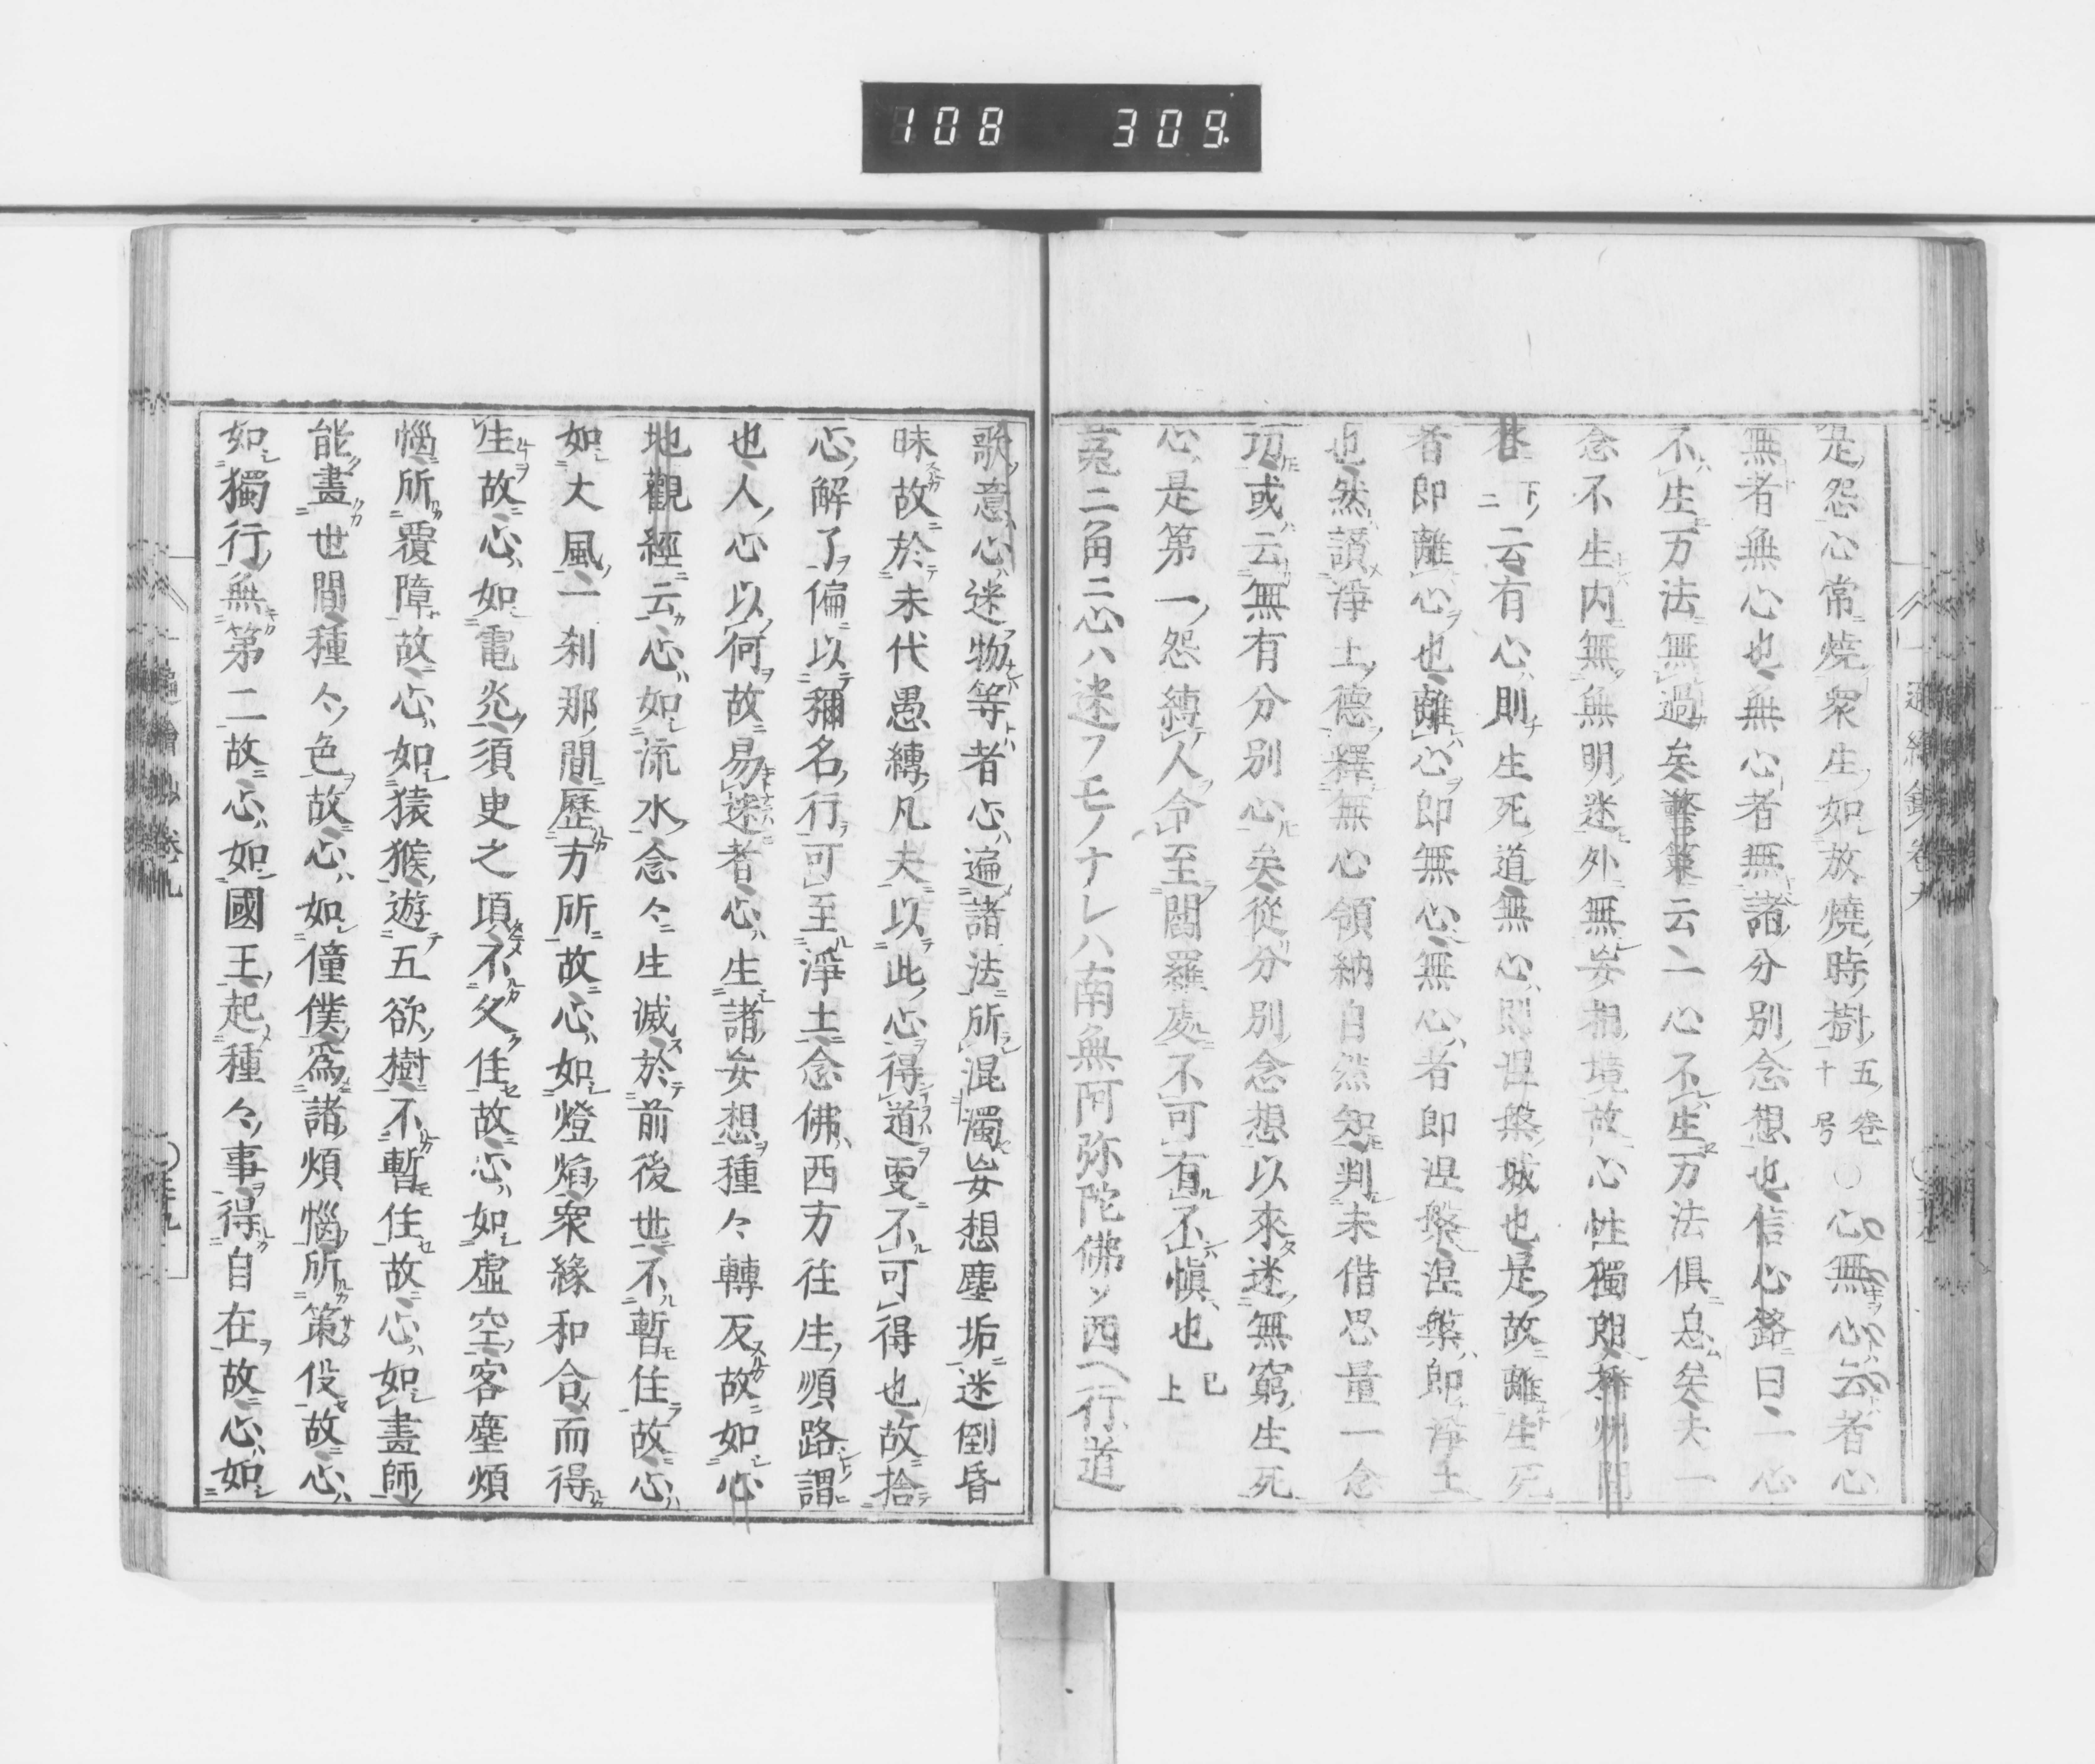 108 309
是怨心常燒衆生如放燒時樹五卷十号〇心無心云者心
無者無心也無心者無諸分別念想也信心銘曰一心
不生万法無過矣警策云一心不生万法俱息矣夫一
念不生内無無明迷外無妄想境故心性獨朗
下二云有心則生死道無心則涅槃城也是故離生死
者即離心也離心即無心無心者即涅槃涅槃即淨土
也然讃淨土德釋無心領納自然知判未借思量一念
功或云無有分別心矣從分別念想以來迷無窮生死
心是第一怨縛人令至閻羅處不可有不愼也已上
二角三心ハ迷フモノナレハ南無阿弥陀佛ソ西ヘ行道
歌意心迷物等者心遍諸法所混濁妄想塵垢迷倒昏
昧故於末代愚縛凡夫以此心得道更不可得也故捨
心解了偏以稱名行可至淨土念佛西方往生順路謂
也人心以何故易迷者心生諸妄想種々轉反故如心
地觀經云心如流水念々生滅於前後世不暫住故心
如大風一刹那間歷方所故心如燈焰衆緣和合而得
生故心如電光須臾之頃不久住故心如虛空客塵煩
惱所覆障故心如猿猴遊五欲樹不暫住故心如畫師
能畫世間種々色故心如僮僕爲諸煩惱所策役故心
如獨行無第二故心如國王起種々事得自在故心如